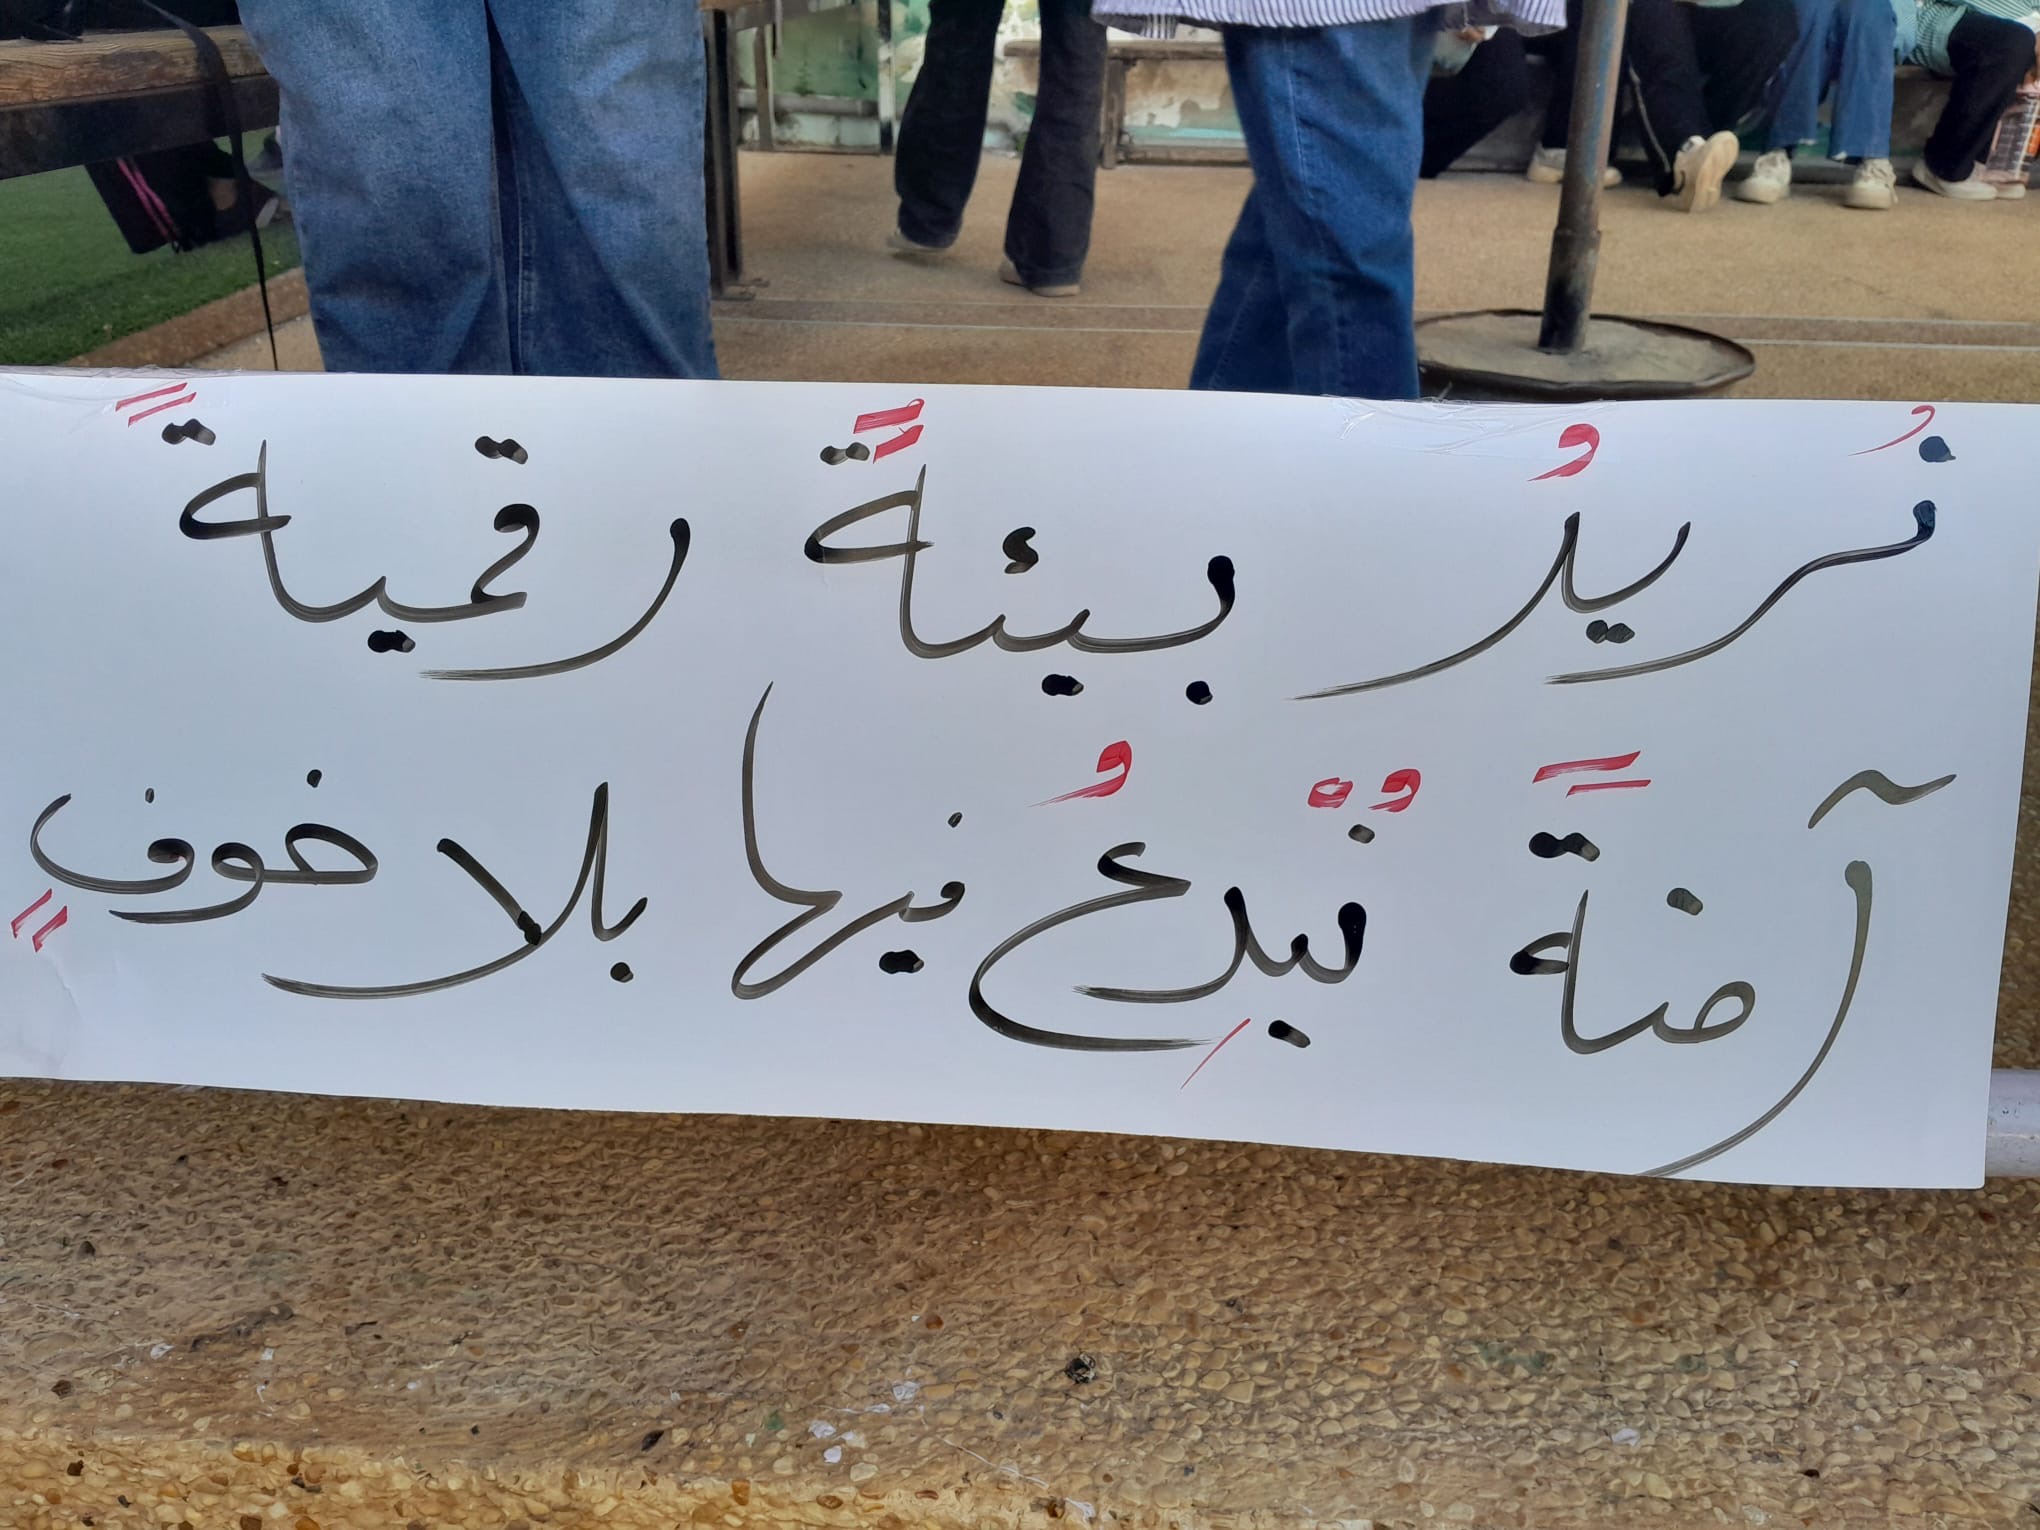 نُريدُ بيئةً رقميةً
آمنةً نُبْدِعُ فيها بلا خوفٍ